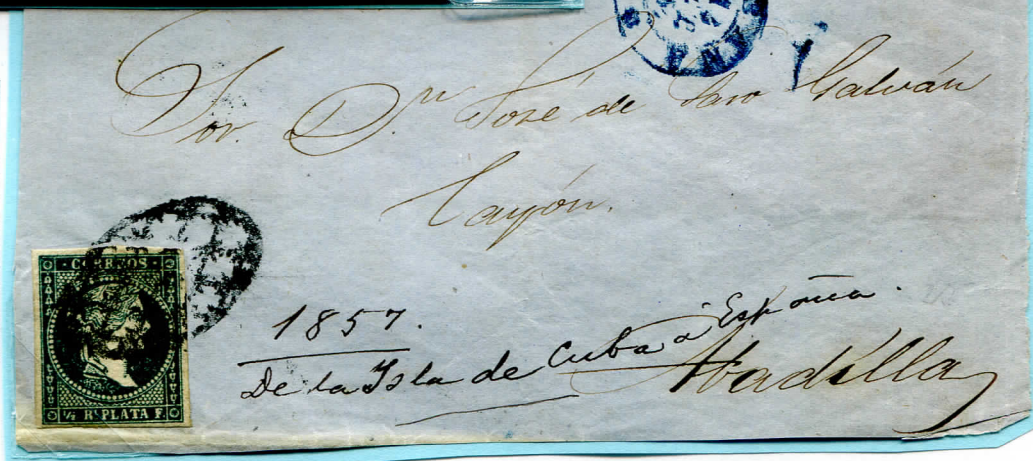 Sor. Dn José de Saro Galván
Cayón.
CORREOS
½ Rl. PLATA F.
1857.
De la Isla de Cuba á España.
Abadilla